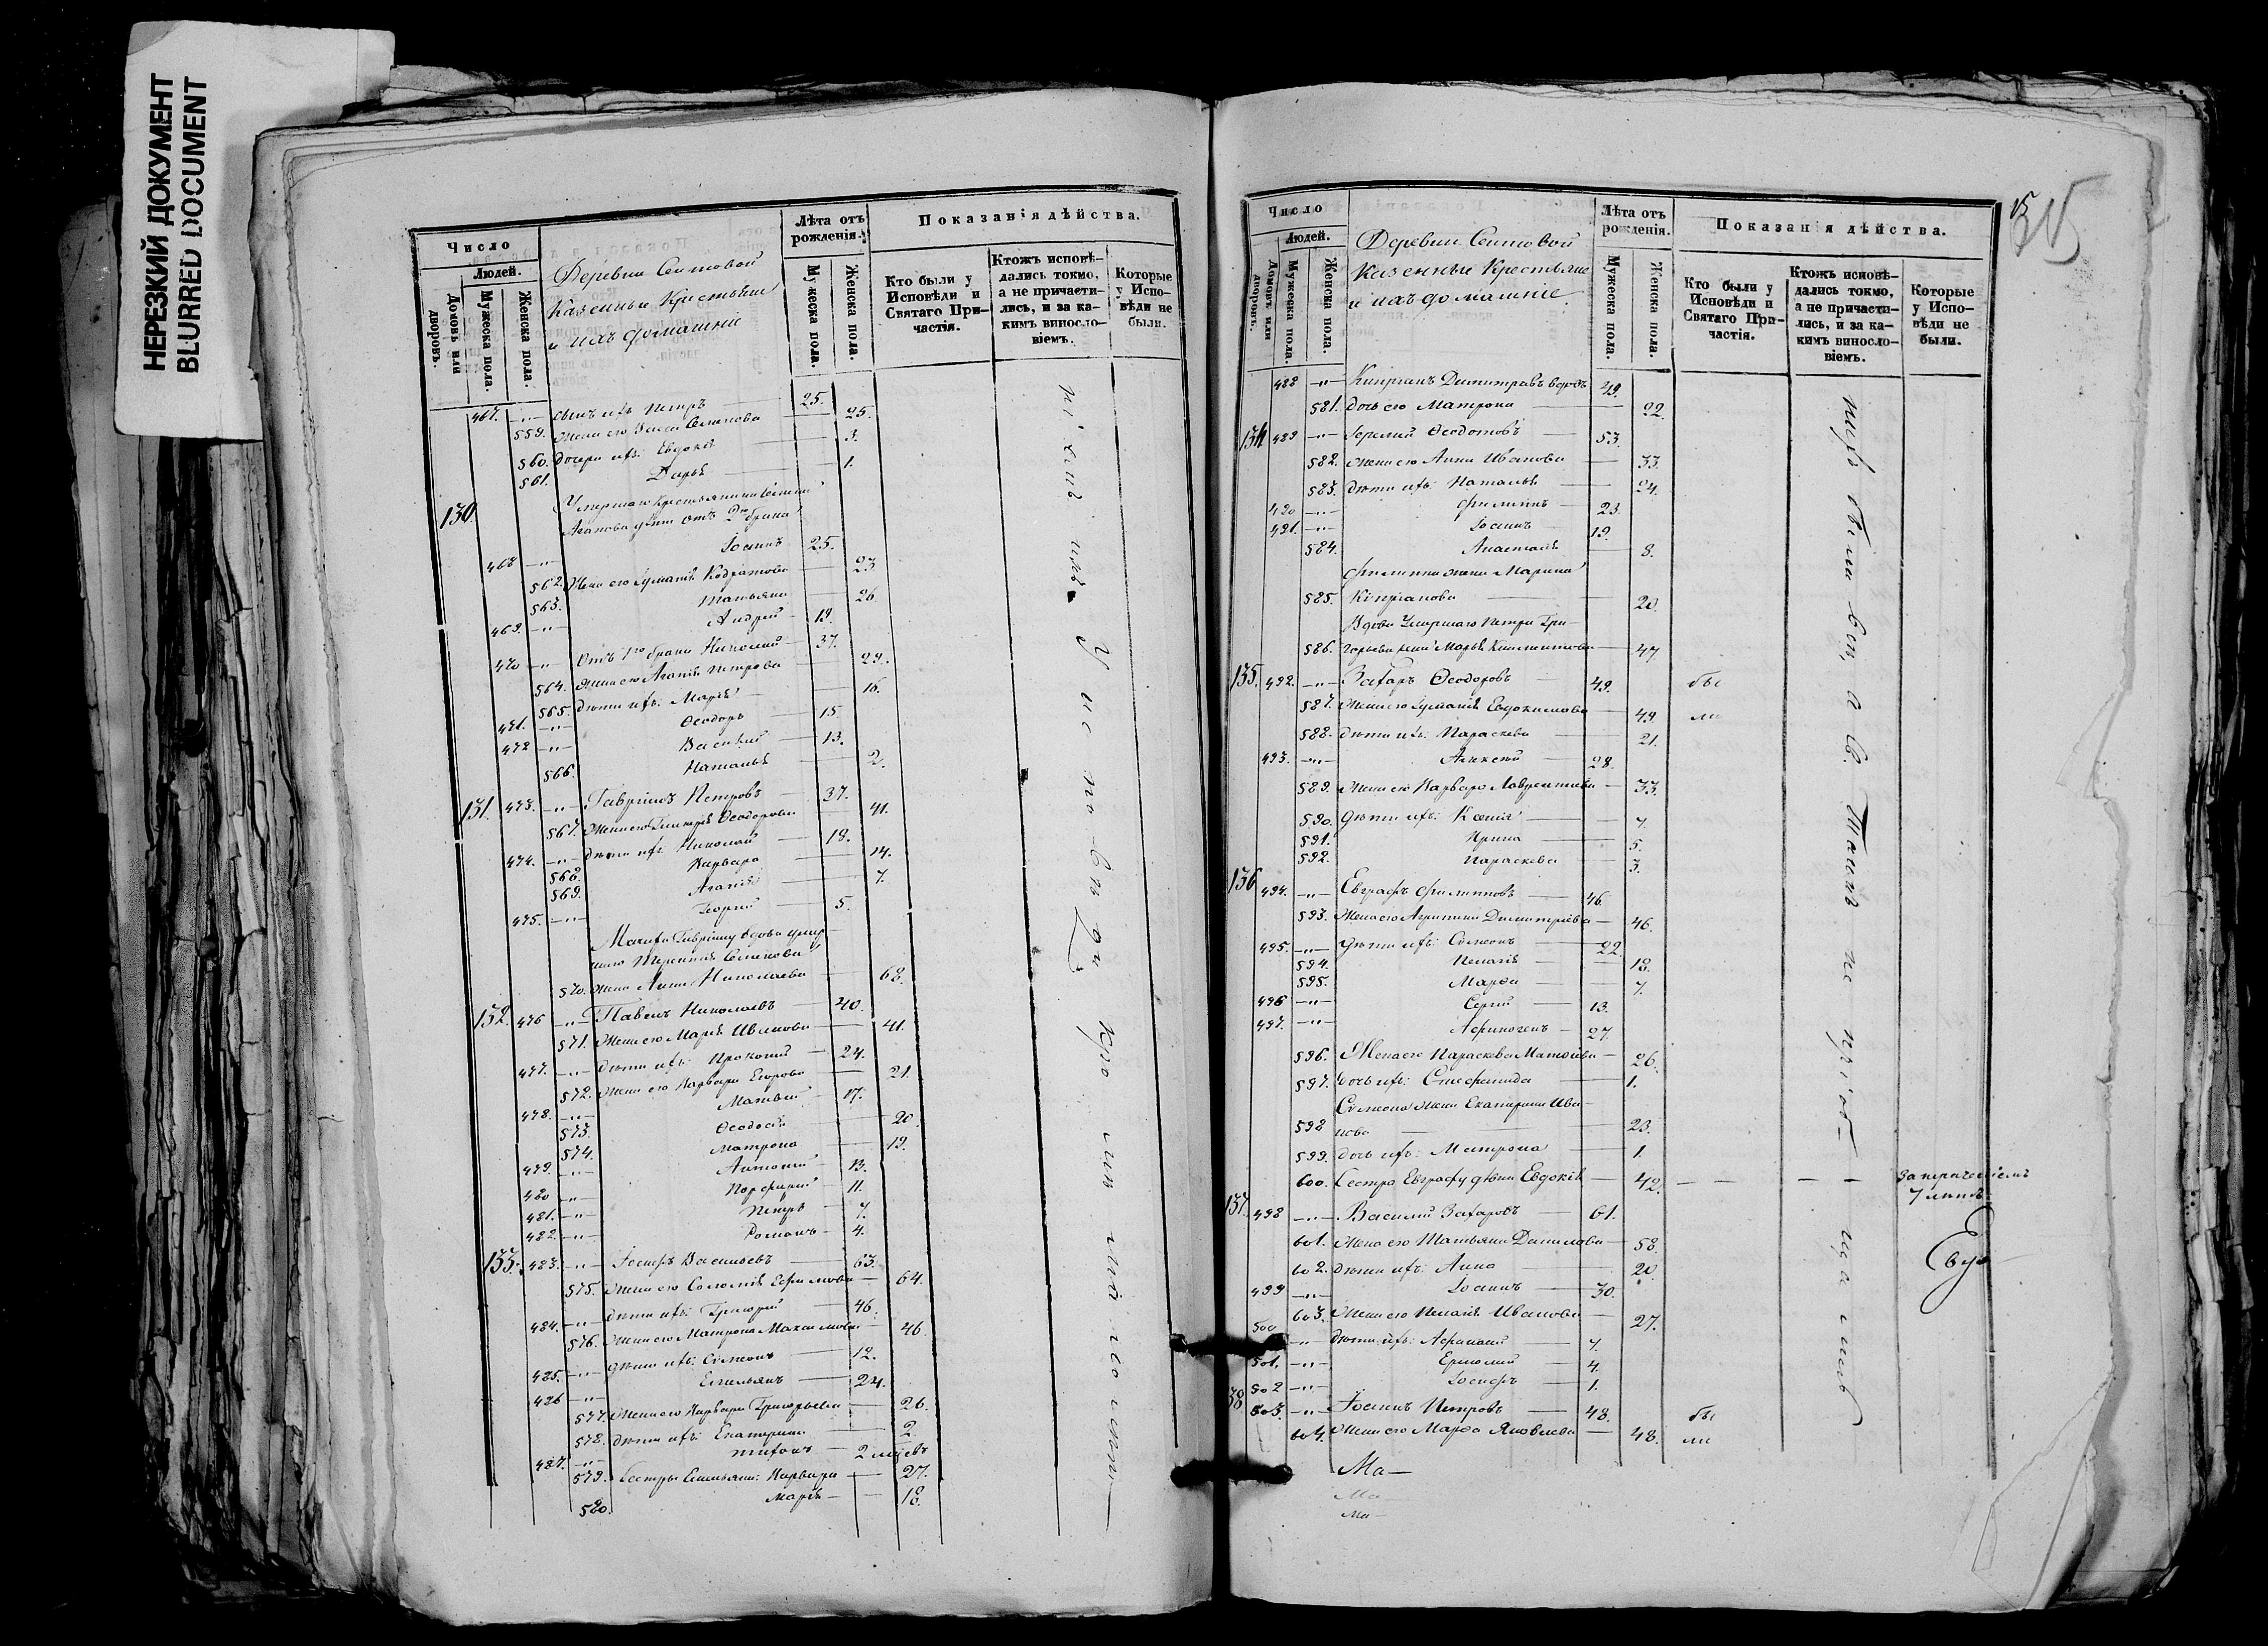 НЕРЕЗКИЙ ДОКУМЕНТ
BLURRED DOCUMENT
Число
Людей.
Домовъ или дворовъ.
Мужеска пола.
Женска пола.
Деревни Сеитовой
Казенныи Крестьяне
и ихъ домашніе
Лѣта отъ рожденія.
Мужеска пола.
Женска пола.
Показанія дѣйства.
Кто были у Исповѣди и Святаго Причастія.
Ктожъ исповѣдались токмо, а не причастились, и за какимъ винословіемъ.
Которые у Исповѣди не были.
467. —"— сынъ ихъ Петръ — 25.
559. Жена его Семенова — 25.
560. дочери ихъ: Евдокія — 3.
561. Дарья — 1.
130. Умершаго крестьянина
Агапова дѣти отъ 2го брака
468 —"— Іоаннъ 25.
562. Жена его Кодратова — 23
563. Татьяна — 26
469. —"— Андрей — 19.
470 —"— Отъ 1го брака Николай — 37.
564. Жена его Агапія Петрова — 29.
565. дѣти ихъ: Марія — 16.
471. —"— Ѳеодоръ — 15
472 —"— Василій — 13.
566. Наталья — 2.
131. 473. —"— Гавріилъ Петровъ — 37.
567. Жена его Ѳеодорова — 41.
474. —"— дѣти ихъ Николай — 18.
568. Варвара — 14.
569. Агапія — 7.
475. —"— Георгій — 5.
Мачиха Гавріилу вдова умер
шаго Терентія Семенова
570. жена Анна Николаева — 68.
132. 476 —"— Павелъ Николаевъ — 40.
571. Жена его Марія Иванова — 41.
477. —"— дѣти ихъ: Прокопій — 24.
572. Жена его Варвара Егорова — 21.
478. —"— Матвей — 17.
573. Ѳеодосія — 20
574. Матрона — 19.
479. —"— Антоній — 13.
480 —"— Порфирій — 11.
481. —"— Петръ — 7.
482. —"— Романъ — 4.
133. 483. —"— Іосифъ Васильевъ — 63.
575. Жена его Соломія Ефимова — 64.
484. —"— дѣти ихъ: Григорій — 46.
576. Жена его Матрона Максимова — 46.
485. —"— дѣти ихъ: Симеонъ — 12.
486 —"— Емельянъ — 24.
577. Жена его Варвара Григорьева — 26.
578. дѣти ихъ: Екатерина — 2
487. —"— Тихонъ — 2 мѣсев
579. Сестры Емельяна: Варвара — 27.
580. Марія — 18.
У исповѣди
Число
Людей.
Домовъ или дворовъ.
Мужеска пола.
Женска пола.
Деревни Сеитовой
Казенныи Крестьяне
и ихъ домашніе.
Лѣта отъ рожденія.
Мужеска пола.
Женска пола.
Показанія дѣйства.
Кто были у Исповѣди и Святаго Причастія.
Ктожъ исповѣдались токмо, а не причастились, и за какимъ винословіемъ.
Которые у Исповѣди не были.
15
488 —"— Кипріанъ Димитріевъ вдовъ 49.
581. дочь его Матрона — 22.
134 489 —"— Іеремій Ѳеодотовъ — 53.
582. Жена его Анна Иванова — 33.
583. дѣти ихъ: Наталья — 24.
490 —"— Филиппъ — 23.
491. —"— Іоаннъ — 19.
584. Анастасія — 8.
Филиппа жена Марина
585. Кипріанова — 20.
Вдова Умершаго Петра Гри-
586. горьева жена Марья Климентова — 47.
135. 492. —"— Захаръ Ѳеодоровъ — 49. бы
587. Жена его Евдокимова — 49. ли
588. дѣти ихъ: Параскева — 21.
493. —"— Алексѣй — 28.
589. Жена его Варвара Лаврентьева — 33.
590. дѣти ихъ: Ксенія — 7.
591. Ирина — 5.
592. Параскева — 3.
136 494. —"— Евграфъ Филипповъ — 46.
593. Жена его Агрипина Димитріева — 46.
495. —"— дѣти ихъ: Симеонъ — 22.
594. Пелагія — 18.
595. Марѳа — 7.
496 —"— Сергій — 13.
497. —"— Афиногенъ — 27.
596. Жена его Параскева Матѳіева — 26.
597. дочь ихъ: Стефанида — 1.
Симеона жена Екатерина Ива-
598 нова — 23.
599. дочь ихъ: Матрона — 1.
600. Сестра Евграфу дѣвка Евдокія — 42. — — — —
137. 498 —"— Василій Захаровъ — 61.
601. Жена его Татьяна Данилова — 58.
602. дѣти ихъ: Анна — 20
499 —"— Іоаннъ — 30.
603. Жена его Пелагія Иванова — 27.
500 —"— дѣти ихъ: Афанасій — 7.
501. —"— Ермолай — 4.
502 —"— Іосифъ — 1.
138 503. —"— Іоаннъ Петровъ — 48. бы
604. Жена его Марѳа Яковлева — 48. ли
а Св. Таинъ не
Ма—
Ма—
Ма—